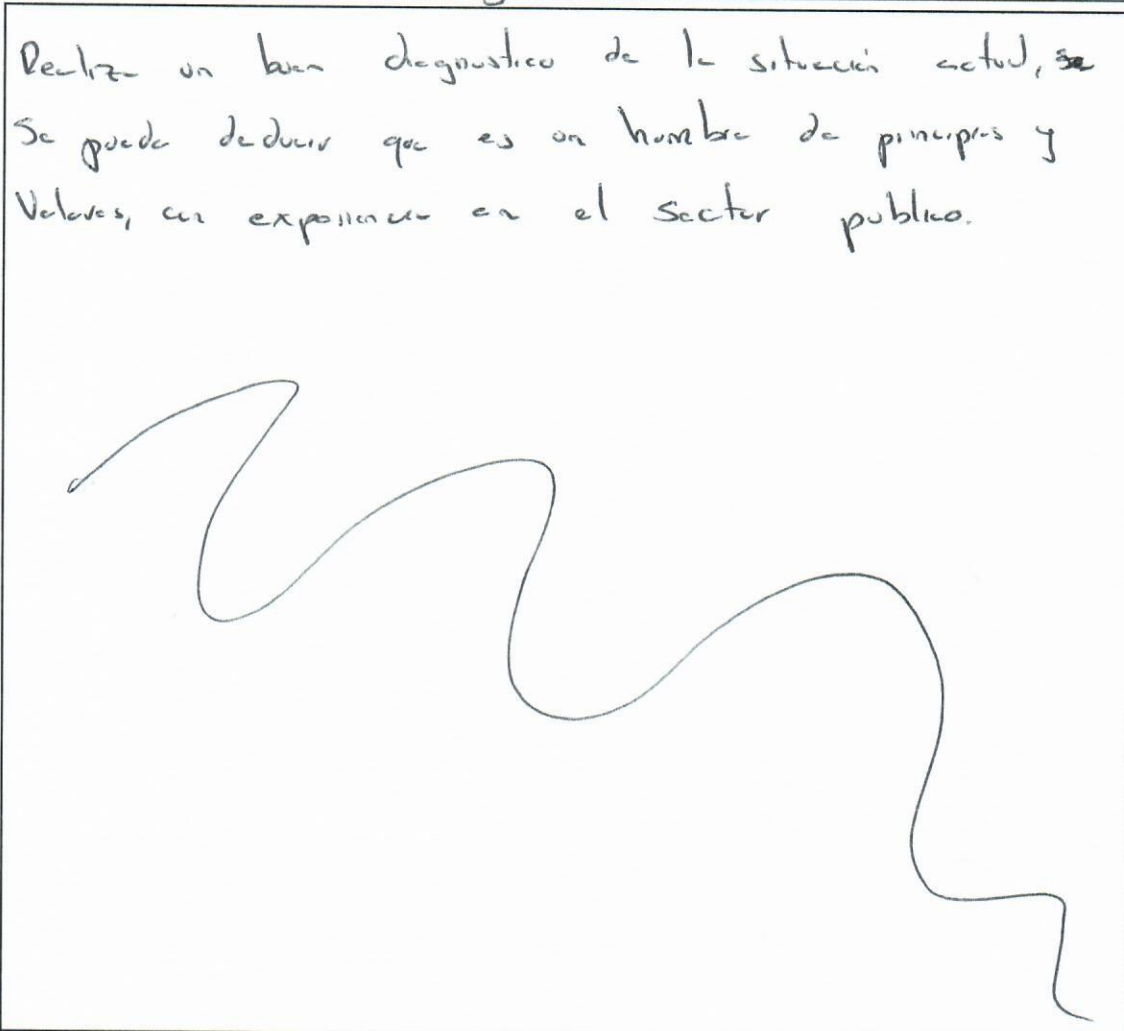 Realiza un buen diagnostico de la situación actual, se
Se puede deducir que es un hombre de principios y
Valores, con experiencia en el Sector publico.